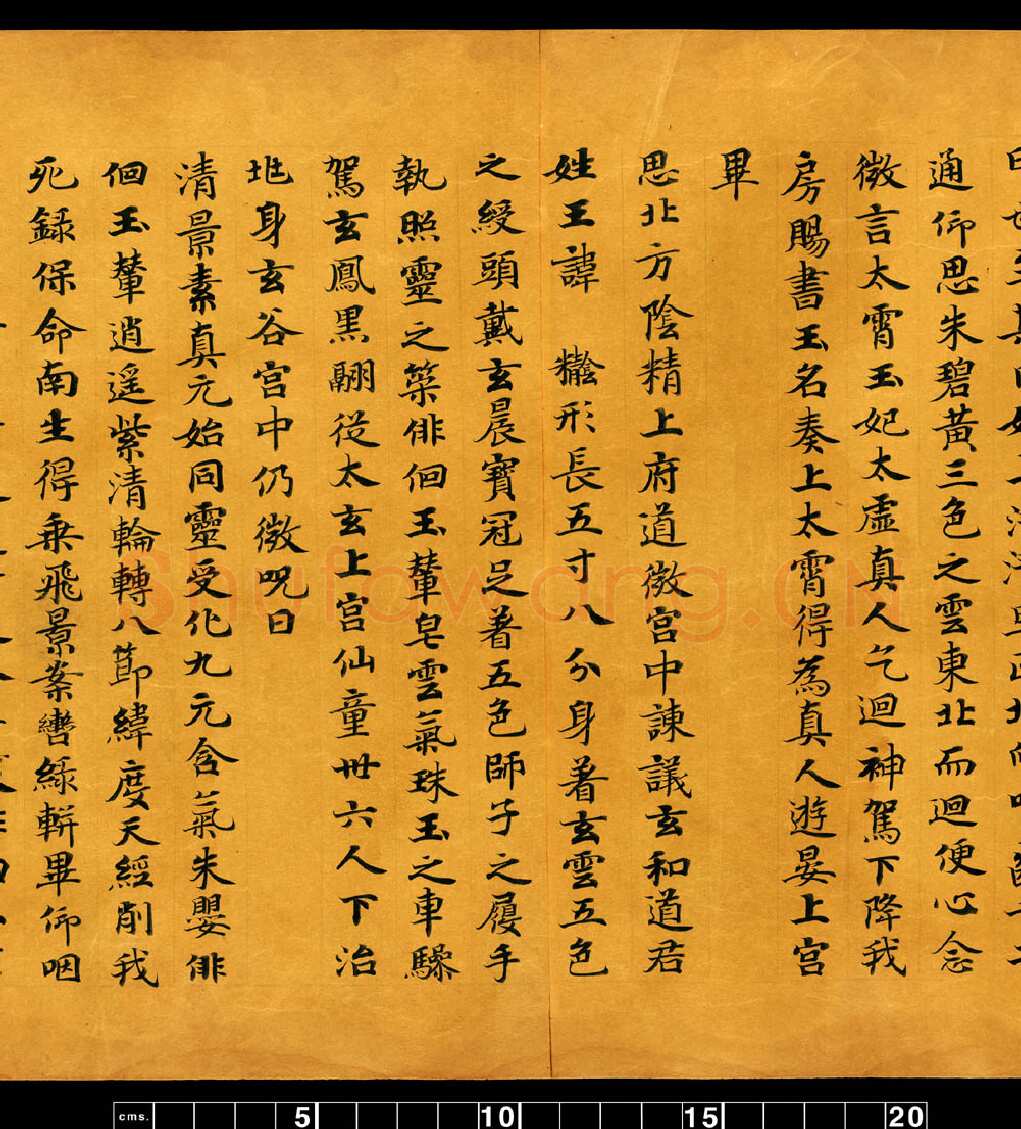 通仰思朱碧黃三色之雲東北而迴便心念
微言太霄玉妃太虛真人乞迴神駕下降我
房賜書玉名奏上太霄得為真人遊晏上宮
畢
思北方陰精上府道微宮中諫議玄和道君
姓王諱 形長五寸八分身著玄雲五色
之綬頭戴玄晨寶冠足著五色師子之履手
執照靈之䇿俳佪玉輦皂雲氣珠玉之車驂
駕玄鳳黑翮從太玄上宮仙童卅六人下治
兆身玄谷宮中仍微呪曰
清景素真元始同靈受化九元含氣朱嬰俳
佪玉輦逍遥紫清輪轉八節緯度天經削我
死録保命南生得乗飛景案轡緑軿畢仰咽
shufawang.CN
cms. 5 10 15 20